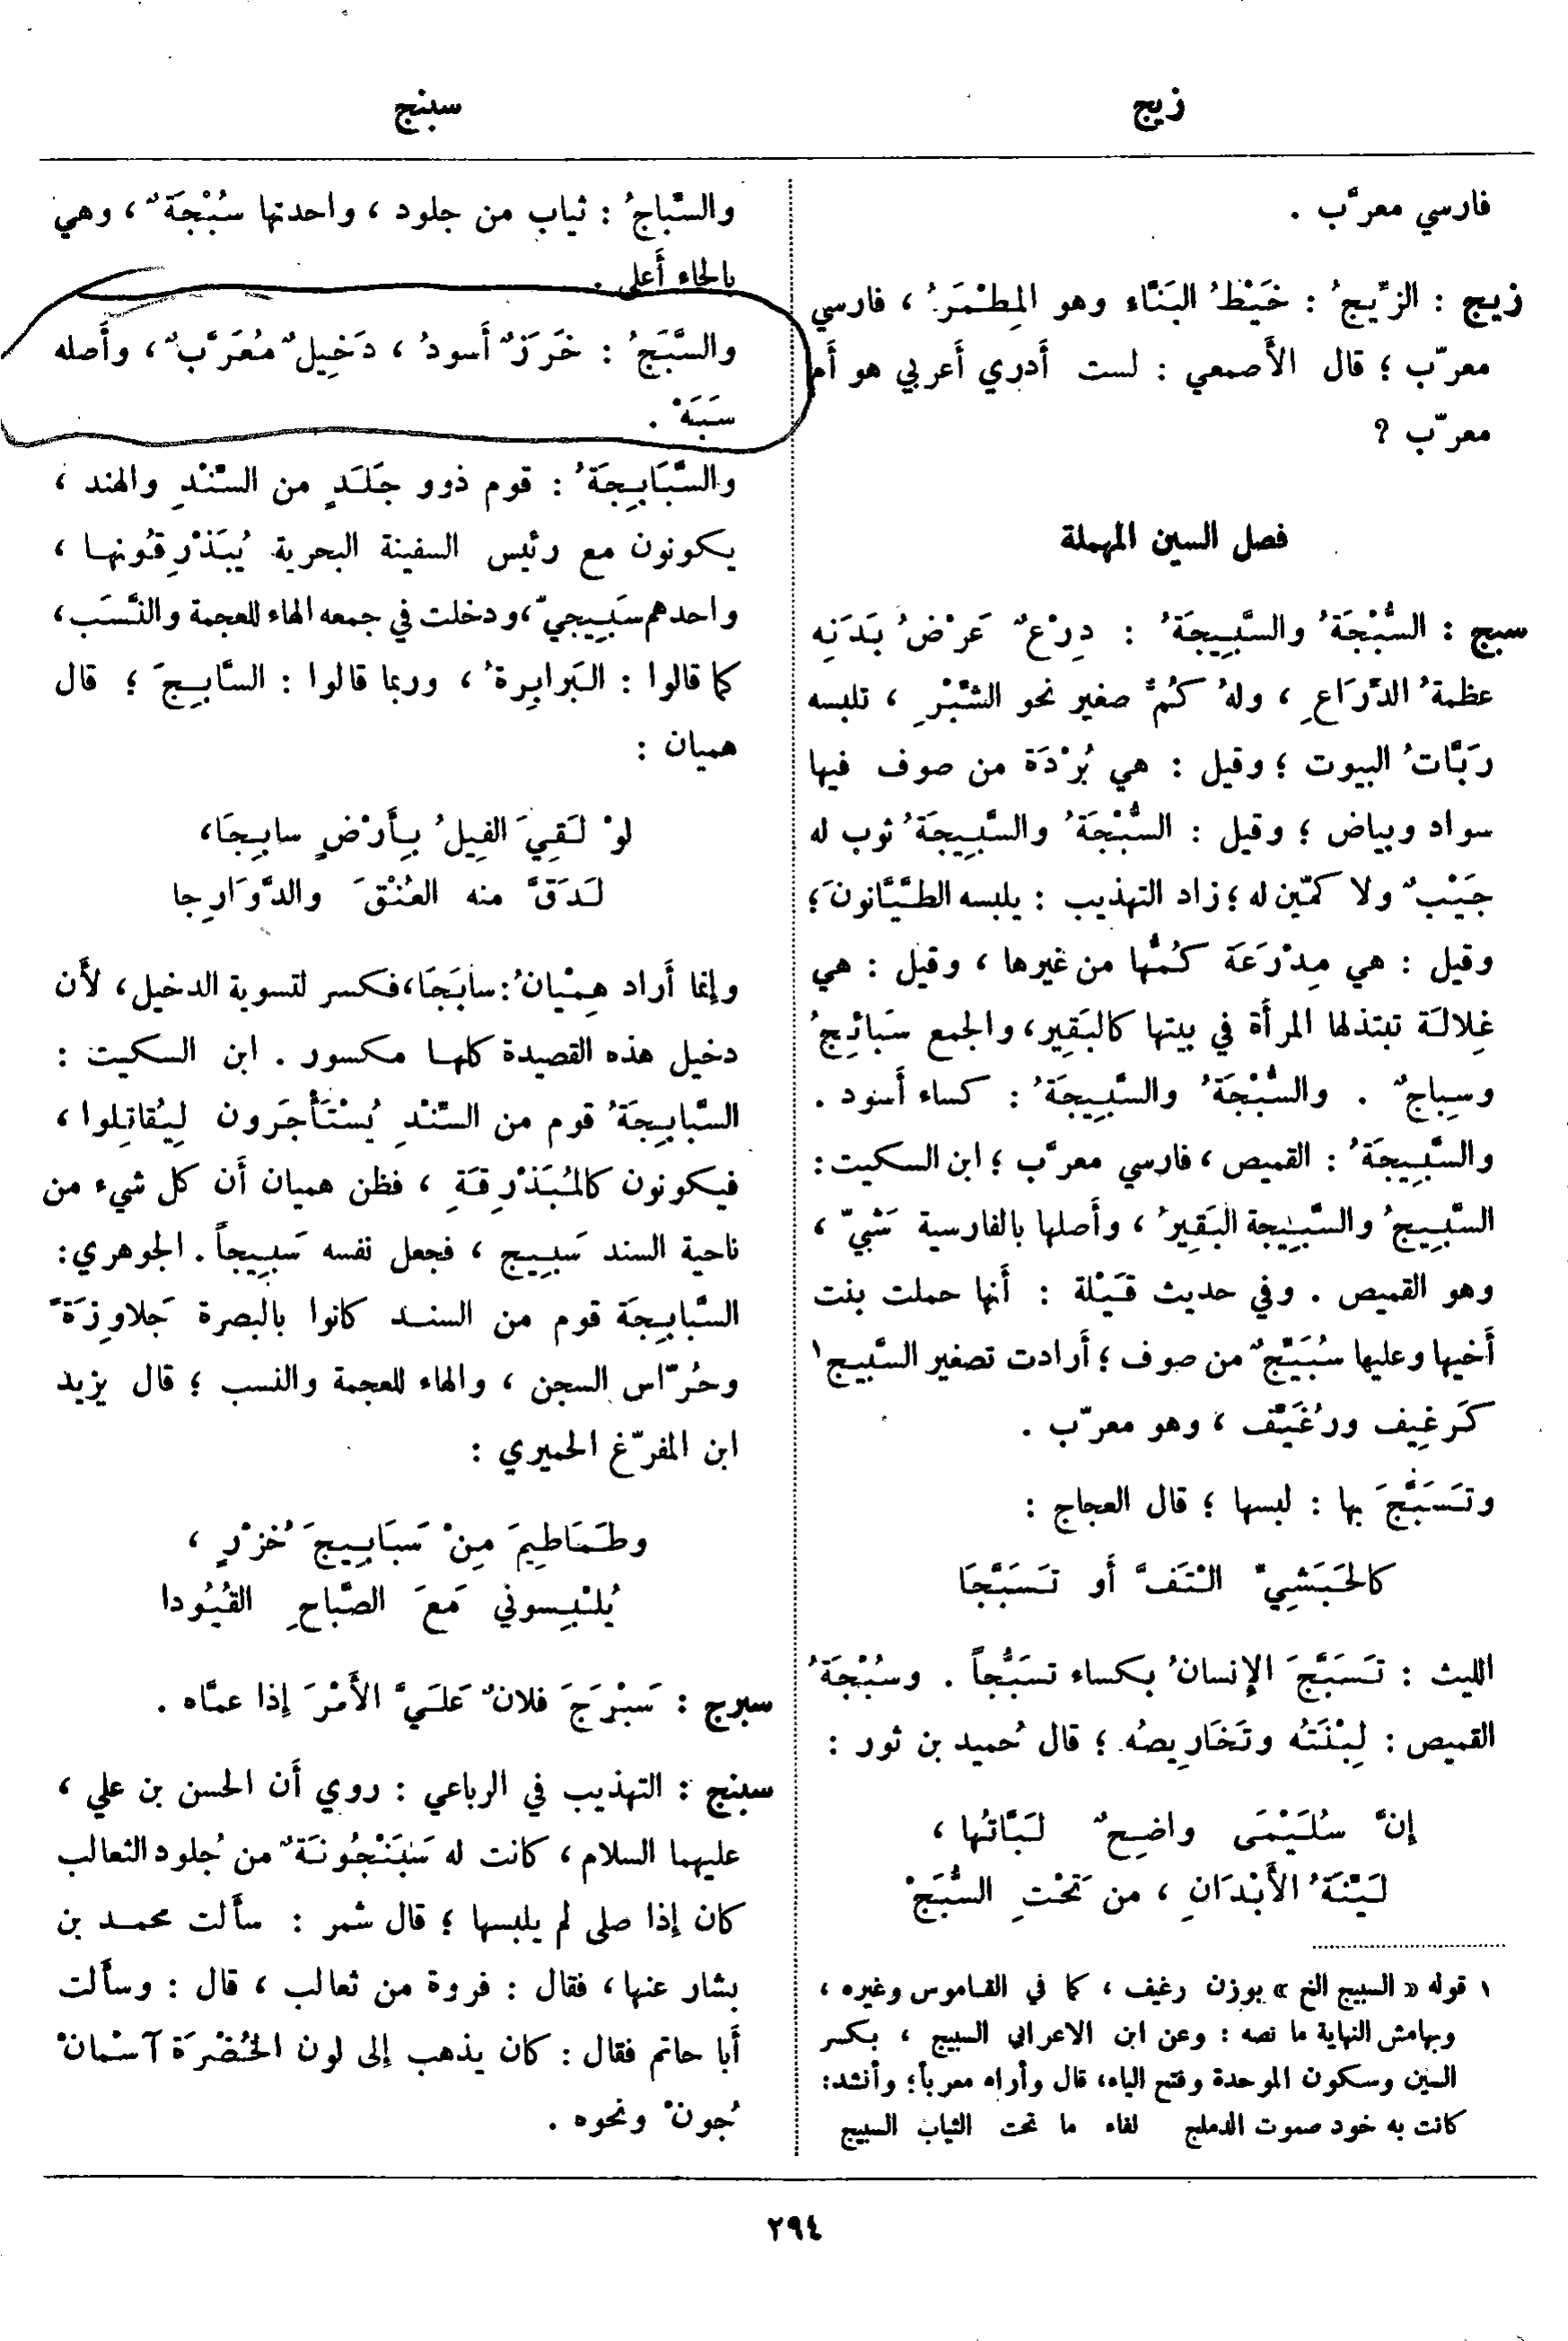 زيج
سبنج
فارسي معرَّب .
زيج : الزِّيجُ : خَيْطُ البَنَّاء وهو المِطْمَرُ ، فارسي
معرّب ؛ قال الأَصمعي : لست أَدري أَعربي هو أَم
معرّب ؟
فصل السين المهملة
سبج : السُّبْجَةُ والسَّبِيجَةُ : دِرْعٌ عَرْضُ بَدَنِه
عظمةُ الذِّرَاعِ ، ولهُ كُمٌّ صغير نحو الشِّبْرِ ، تلبسه
رَبَّاتُ البيوت ؛ وقيل : هي بُرْدَة من صوف فيها
سواد وبياض ؛ وقيل : السُّبْجَةُ والسَّبِيجَةُ ثوب له
جَيْبٌ ولا كمّين له ؛ زاد التهذيب : يلبسه الطَّيَّانونَ ؛
وقيل : هي مِدْرَعَة كُمُّها من غيرها ، وقيل : هي
غِلالَة تبتذلها المرأَة في بيتها كالبَقِير ، والجمع سَبائِجُ
وسِباجٌ . والسُّبْجَةُ والسَّبِيجَةُ : كساء أَسود .
والسَّبِيجَةُ : القميص ، فارسي معرَّب ؛ ابن السكيت :
السَّبِيجُ والسَّبِيجة البَقِيرُ ، وأَصلها بالفارسية شَبيّ ،
وهو القميص . وفي حديث قَيْلة : أَنها حملت بنت
أَخيها وعليها سُبَيِّجٌ من صوف ؛ أَرادت تصغير السَّبيج١
كَرغِيف ورُغَيِّف ، وهو معرّب .
وتَسَبَّجَ بها : لبسها ؛ قال العجاج :
كالحَبَشِيِّ الْتَفَّ أَو تَسَبَّجَا
الليث : تَسَبَّجَ الإِنسانُ بكساء تسَبُّجاً . وسُبْجَةُ
القميص : لِبْنَتُه وتَخَارِيصُه ؛ قال حُميد بن ثور :
إِنَّ سُلَيْمَى واضِحٌ لَبَّاتُها ،
لَيِّنَةُ الأَبْدَانِ ، من تَحْتِ السُّبَجْ
١ قوله « السبيج الخ » بوزن رغيف ، كما في القاموس وغيره ،
وبهامش النهاية ما نصه : وعن ابن الاعرابي السبيج ، بكسر
السين وسكون الموحدة وفتح الياء، قال وأراه معرباً؛ وأنشد:
كانت به خود صموت الدملج لفاء ما تحت الثياب السبيج
والسِّباجُ : ثياب من جلود ، واحدتها سُبْجَةٌ ، وهي
بالحاء أَعلى .
والسَّبَجُ : خَرَزٌ أَسودُ ، دَخِيلٌ مُعَرَّبٌ ، وأَصله
سَبَهْ .
والسَّبَابِجَةُ : قوم ذوو جَلَدٍ من السِّنْدِ والهند ،
يكونون مع رئيس السفينة البحرية يُبَذْرِقُونها ،
واحدهم سَبِيجيّ ، ودخلت في جمعه الهاء للعجمة والنَّسَب ،
كما قالوا : البَرابِرةُ ، وربما قالوا : السَّابِجَ ؛ قال
هميان :
لوْ لَقِيَ الفِيلُ بِأَرْضٍ سابِجَا ،
لَدَقَّ منه العُنْقَ والدَّوَارِجا
وإِنما أَراد هِمْيانُ : سابَجَا ، فكسر لتسوية الدخيل ، لأَن
دخيل هذه القصيدة كلها مكسور . ابن السكيت :
السَّبابِجَةُ قوم من السِّنْدِ يُسْتَأْجَرون لِيُقاتِلوا ،
فيكونون كالمُبَذْرِقَةِ ، فظن هميان أَن كل شيء من
ناحية السند سَبِيج ، فجعل نفسه سَبِيجاً . الجوهري :
السَّبابِجَة قوم من السند كانوا بالبصرة جَلاوِزَةً
وحُرّاس السجن ، والهاء للعجمة والنسب ؛ قال يزيد
ابن المفرّغ الحميري :
وطَمَاطِيمَ مِنْ سَبَابِيجَ خُزْرٍ ،
يُلْبِسوني مَعَ الصَّباحِ القُيُودا
سبرج : سَبْرَجَ فلانٌ عَلَيَّ الأَمْرَ إِذا عمَّاه .
سبنج : التهذيب في الرباعي : روي أَن الحسن بن علي ،
عليهما السلام ، كانت له سَبَنْجُونَةٌ من جُلود الثعالب
كان إِذا صلى لم يلبسها ؛ قال شمر : سأَلت محمد بن
بشار عنها ، فقال : فروة من ثعالب ، قال : وسأَلت
أَبا حاتم فقال : كان يذهب إِلى لون الخُضْرَة آسْمانْ
جُونْ ونحوه .
٢٩٤